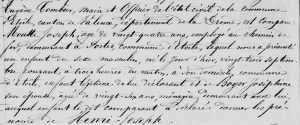 Eugène Combier, Maire et Officier de l'état civil de la commune
d'Etoile, canton de Valence, département de la Drôme, est comparu
Joseph, âgé de vingt quatre ans, employé au chemin de
fer demeurant à commune d'Etoile, lequel nous a présenté
un enfant du sexe masculin, né vingt trois septembre
courant, à trois heures du matin, à son domicile, commune
d'Etoile, enfant légitime du déclarant et de Joséphine
son épouse, âgée de vingt ans, ménagère, demeurant avec lui,
auquel enfant le dit comparant a déclaré donner les pré-
noms de Henri-Joseph